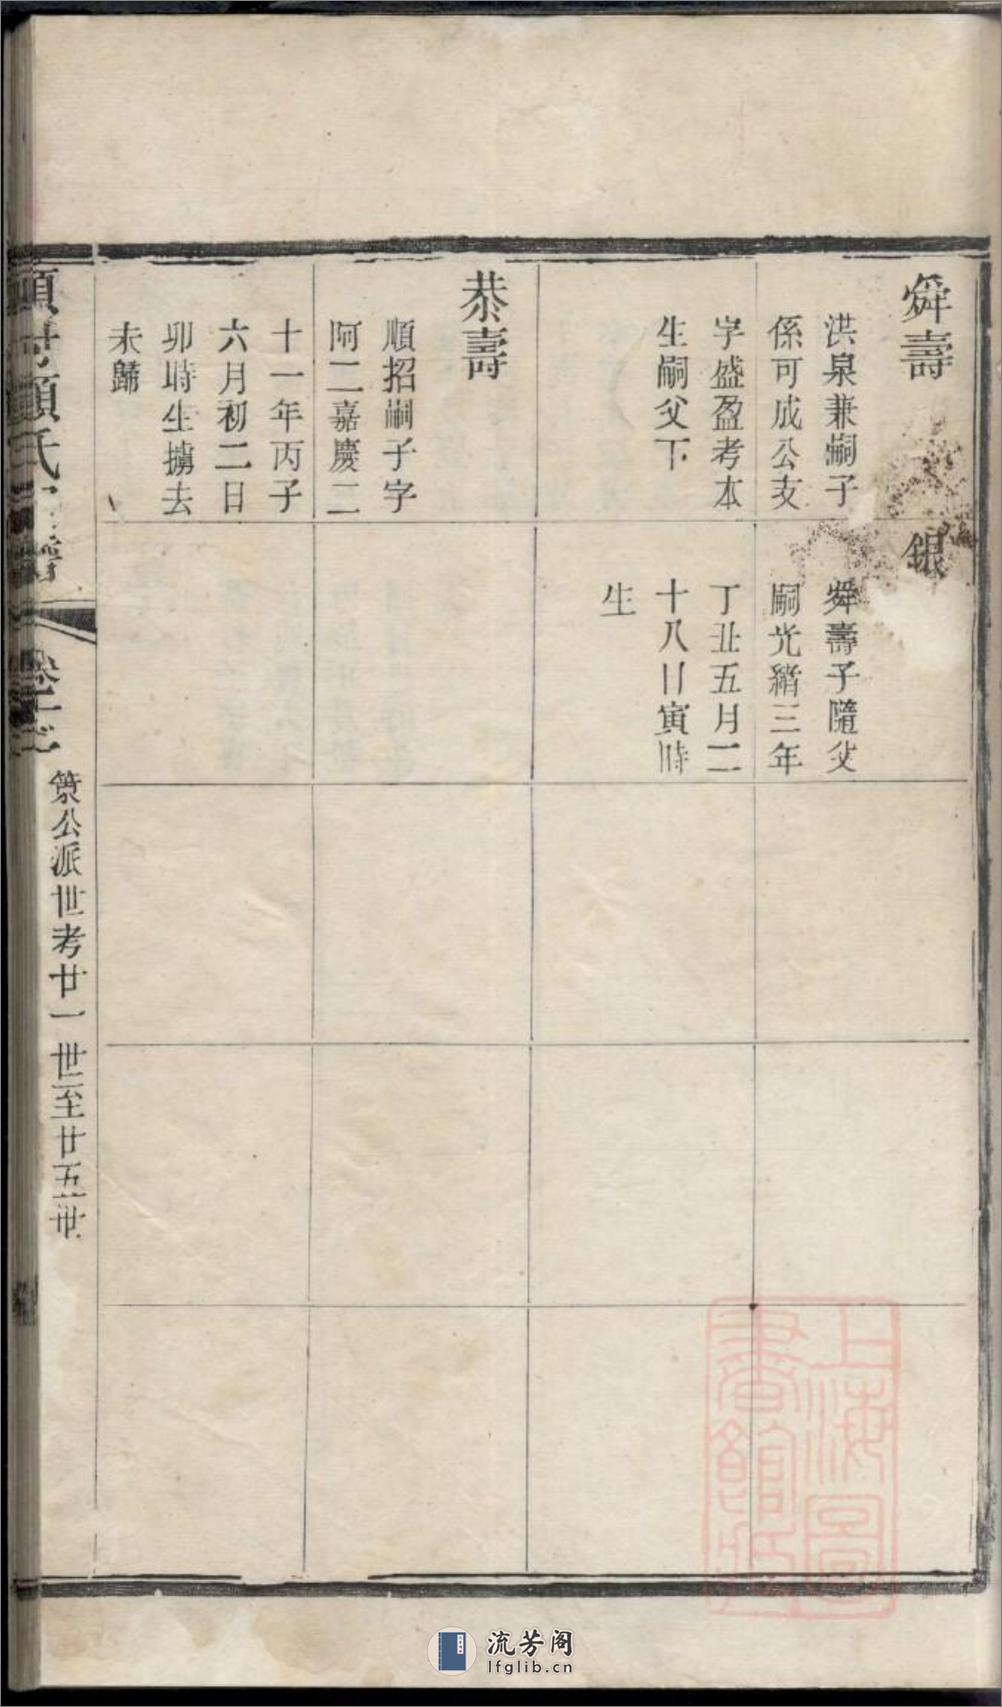 舜壽
洪泉兼嗣子
係可成公支
字盛盈考本
生嗣父下
恭壽
順招嗣子字
阿二嘉慶二
十一年丙子
六月初二日
卯時生擄去
未歸
銀
舜壽子隨父
嗣光緒三年
丁丑五月二
十八日寅時
生
顧氏
策公派世考廿一世至廿五世
上海圖
書館藏
流芳阁
lfglib.cn